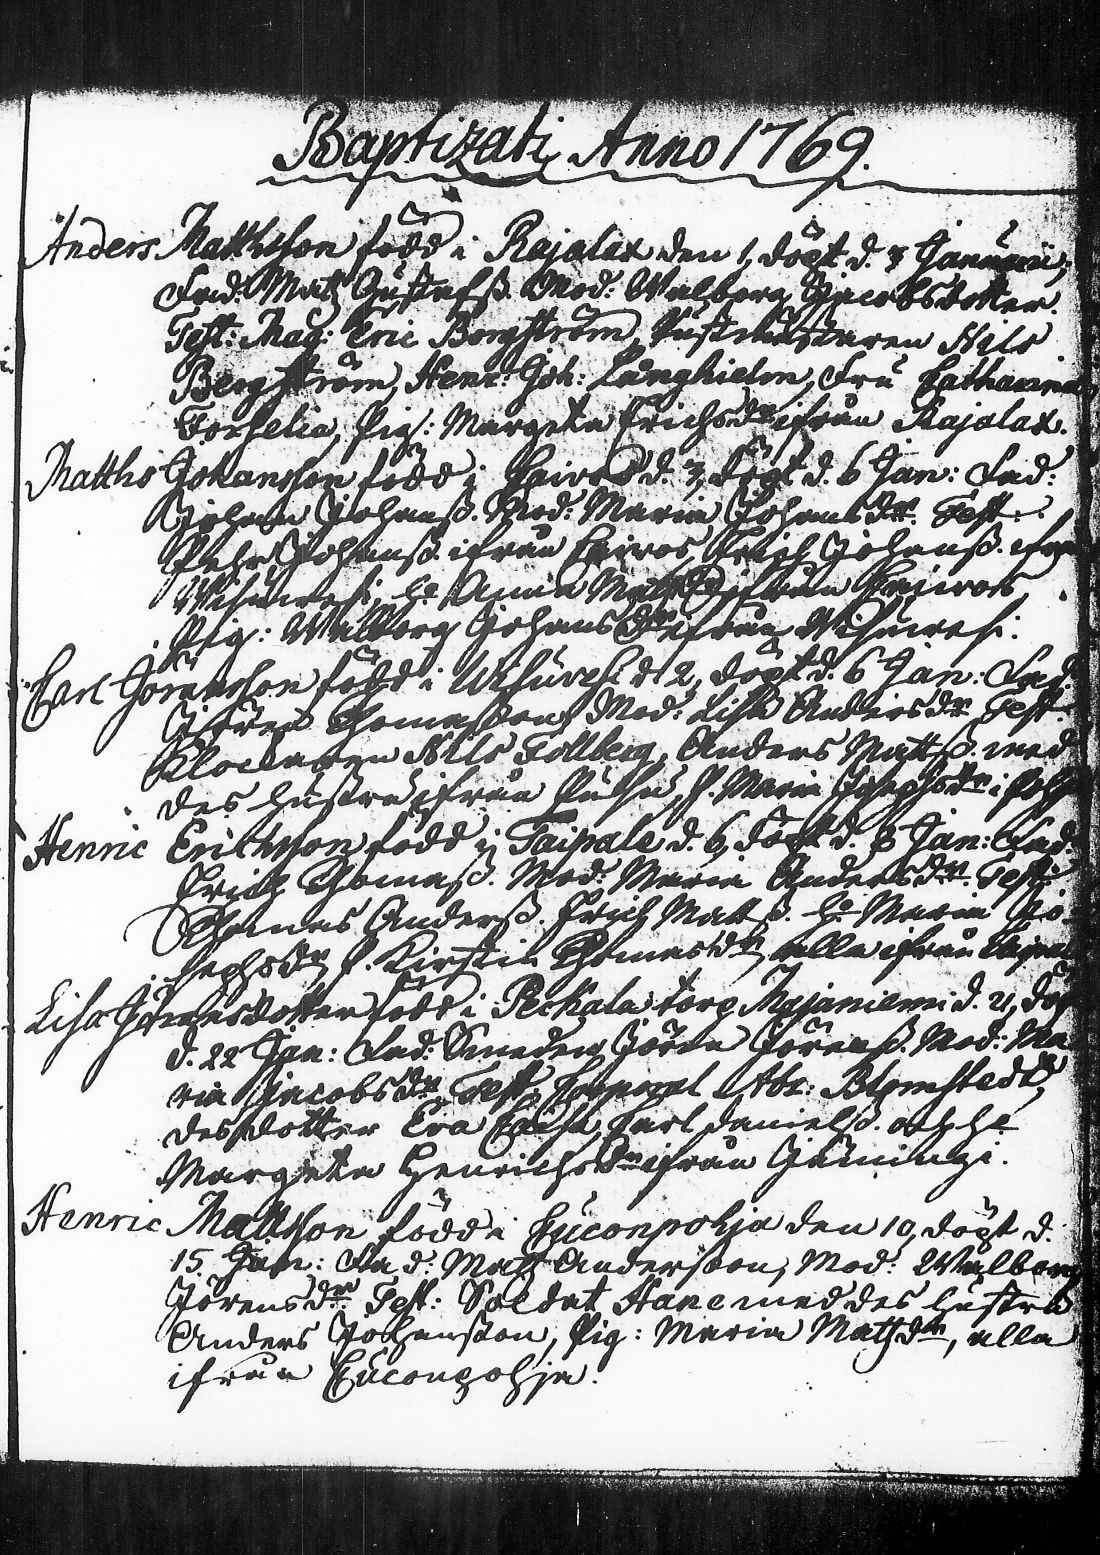 Baptizati Anno 1769.
Anders Matthsson född i Rajalax den 1, döpt d. 3 Januarii,
Fad: Matz Gustafss. Mod: Walborg Jacobsdotter.
Test: Mag: Eric Bergström, Rustmästaren Nils
Bergström, Henr: Joh: Långhielm, Fru Catharina
Forselia, Pig: Margeta Erichsdr ifrån Rajalax.
Matths Johansson född i d. 3, döpt d. 6 Jan: Fad:
Johan Johanss. Mod: Maria Johansdr. Test:
Pehr Johanss. ifrån Erich Johanss. ifrån
h: Anna ifrån
Pig: Walborg Johansdr ifrån
Carl Jöransson född i d 2, döpt d. 6 Jan: Fad:
Jören Thomasson, Mod: Lisa Andersdr. Test:
Klockaren Nils Tollberg, Anders Mattss. med
des hustru ifrån P. Maria Josephsdr i
Henric Erichsson född i Taipale d. 6, döpt d. 8 Jan: Fad:
Erich Thomass. Mod: Maria Andersdr. Test:
Thomas Anderss. Erich Matss. h: Maria Jo-
sephsdr P. Kirstin Thomasdr, alla ifrån
Lisa Jörensdotter född i Peckala torp Majaniemi d. 21, döpt
d. 22 Jan: Fad: Smeden Jören Jörenss. Mod: Ma-
ria Jacobsdr Test: Corporal Abr: Blomstedt,
des dotter Eva Carl Danielss. och h:
Margeta Henrichsdr ifrån
Henric Mattsson född i Euconpohja den 10, döpt d:
15 Jan: Fad: Matz Andersson, Mod: Walborg
Jörensdr. Test: Soldat Hane med des hustru
Anders Johansson, Pig: Maria Matzdr, alla
ifrån Euconpohja.